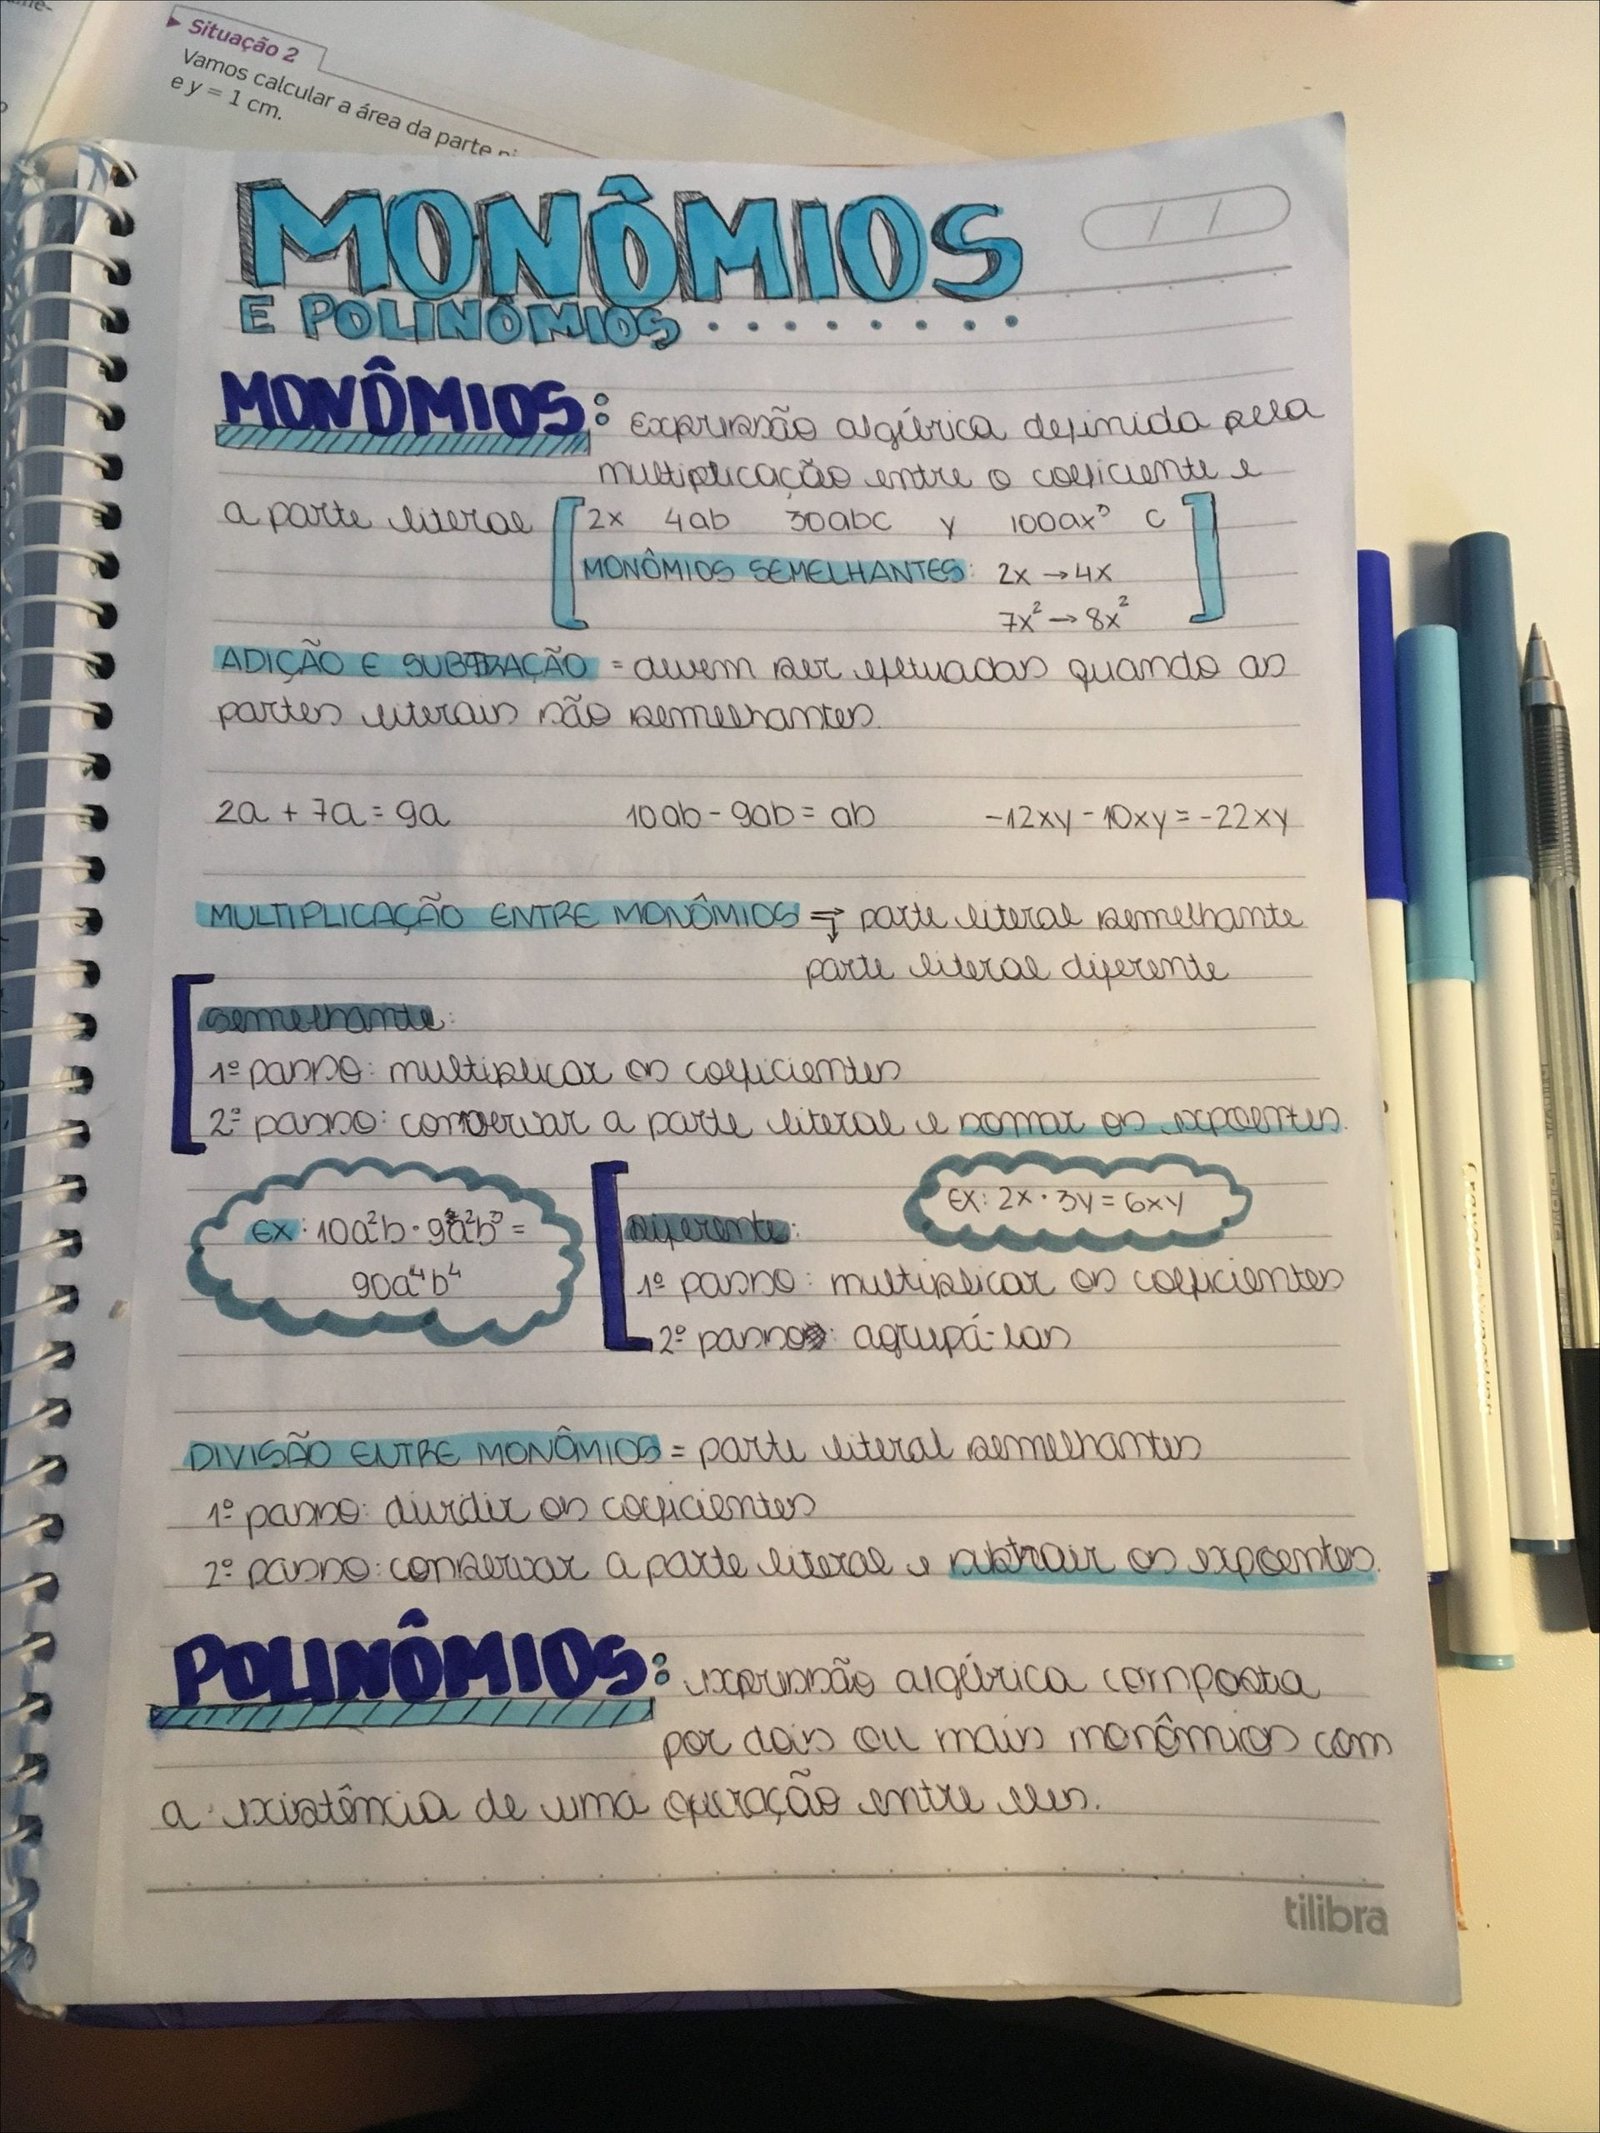 Situação 2
Vamos calcular a área da parte
e y = 1 cm.
MONÔMIOS
E POLINÔMIOS ........
MONÔMIOS: expressão algébrica definida pela
multiplicação entre o coeficiente e
a parte literal [2x 4ab 30abc y 100ax³ c]
MONÔMIOS SEMELHANTES: 2x → 4x
7x² → 8x²
ADIÇÃO E SUBTRAÇÃO = devem ser efetuadas quando as
partes literais são semelhantes.
2a + 7a = 9a 10ab - 9ab = ab -12xy - 10xy = -22xy
MULTIPLICAÇÃO ENTRE MONÔMIOS → parte literal semelhante
↓ parte literal diferente
semelhante:
1º passo: multiplicar os coeficientes
2º passo: conservar a parte literal e somar os expoentes.
Ex: 10a²b · 9a²b³ =
90a⁴b⁴
EX: 2x · 3y = 6xy
diferente:
1º passo: multiplicar os coeficientes
2º passo: agrupá-las
DIVISÃO ENTRE MONÔMIOS = parte literal semelhantes
1º passo: dividir os coeficientes
2º passo: conservar a parte literal e subtrair os expoentes.
POLINÔMIOS: expressão algébrica composta
por dois ou mais monômios com
a existência de uma operação entre eles.
tilibra